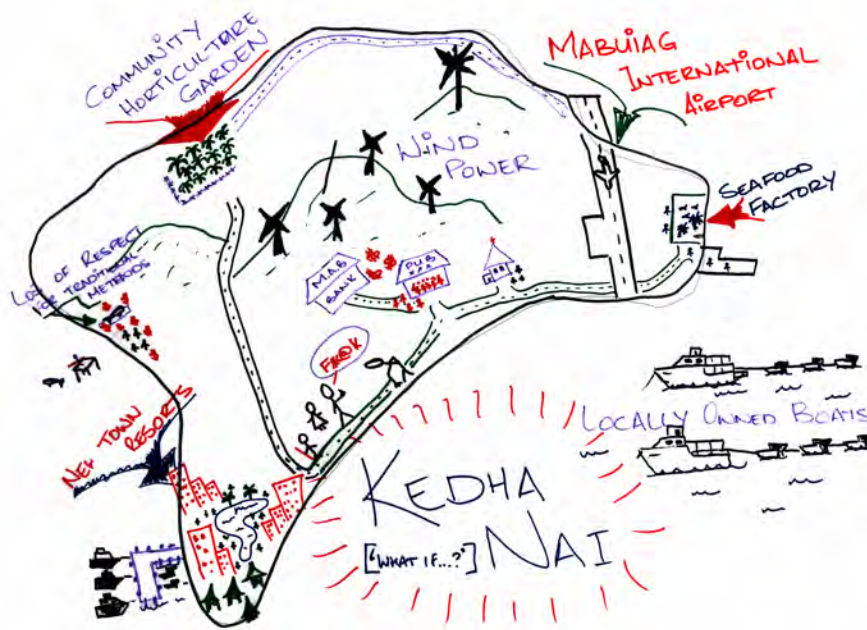 COMMUNITY
HORTICULTURE
GARDEN
MABUIAG
INTERNATIONAL
AIRPORT
WIND
POWER
SEAFOOD
FACTORY
LOTS OF RESPECT
FOR TRADITIONAL
METHODS
MAB
BANK
PUB
XXX
F*@K
NEW TOWN
RESORTS
LOCALLY OWNED BOATS
KEDHA
["WHAT IF...?"] NAI